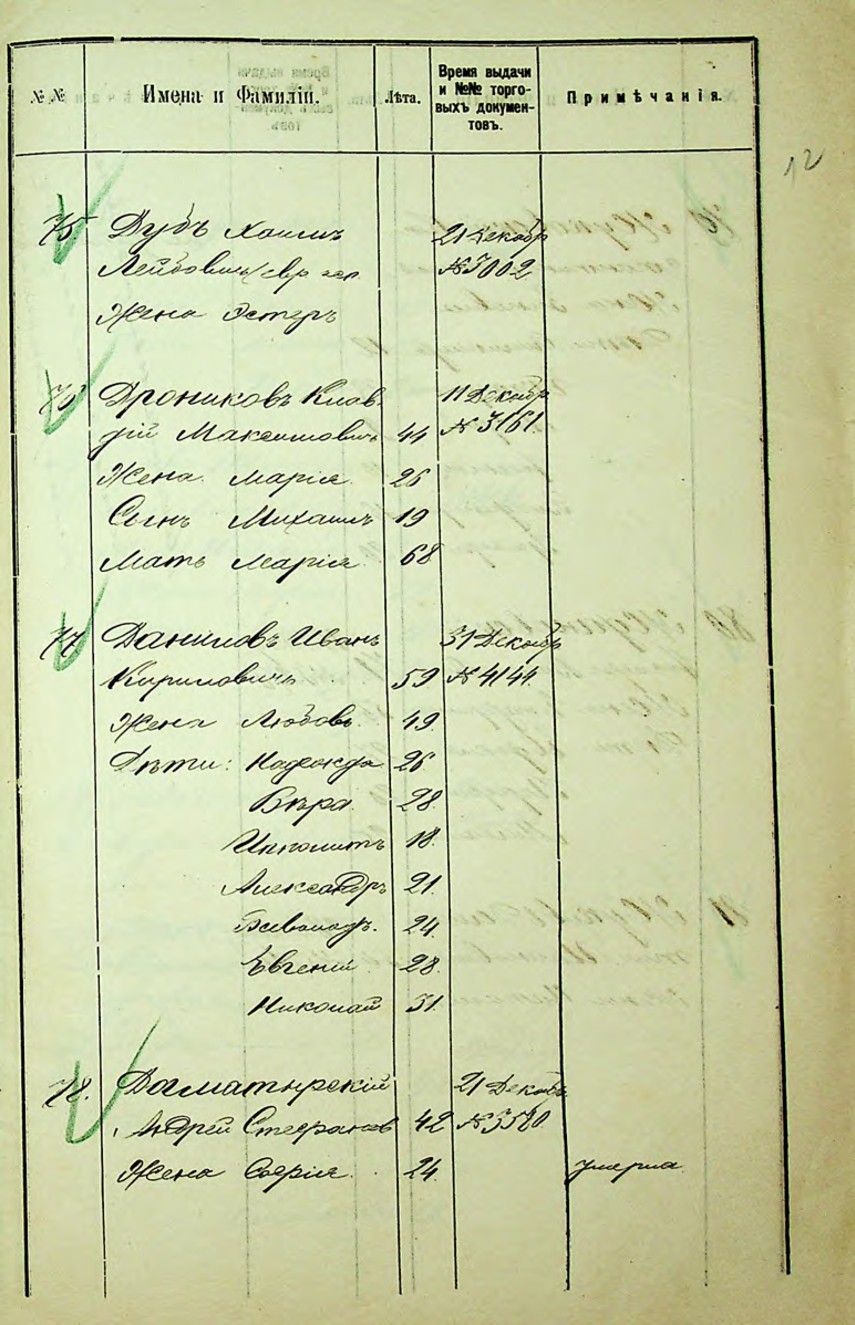 12
№№ Имена и Фамиліи. Лѣта. Время выдачи и №№ торго- выхъ докумен- товъ. Примѣчанія.
75. Дубъ Хаимъ 21 Декабр
Лейбовичъ №3002
Жена Эстеръ
76 Дрониковъ Клав- 11 Декабр
дій Максимовичъ 44 № 3161.
Жена Марія 26
Сынъ Михаилъ 19
Мать Марія 68
77 Даниловъ Иванъ 31 Декабр
Кириловичъ 59 № 4144.
Жена Любовь 49.
Дѣти: Надежда 26
Вѣра. 28.
Ипполитъ 18.
Александръ 21.
Всеволодъ. 24.
Евгеній 28.
Николай 31.
78. 21 Декабр
Андрей 42 №3520
Жена Софія. 24. умерла